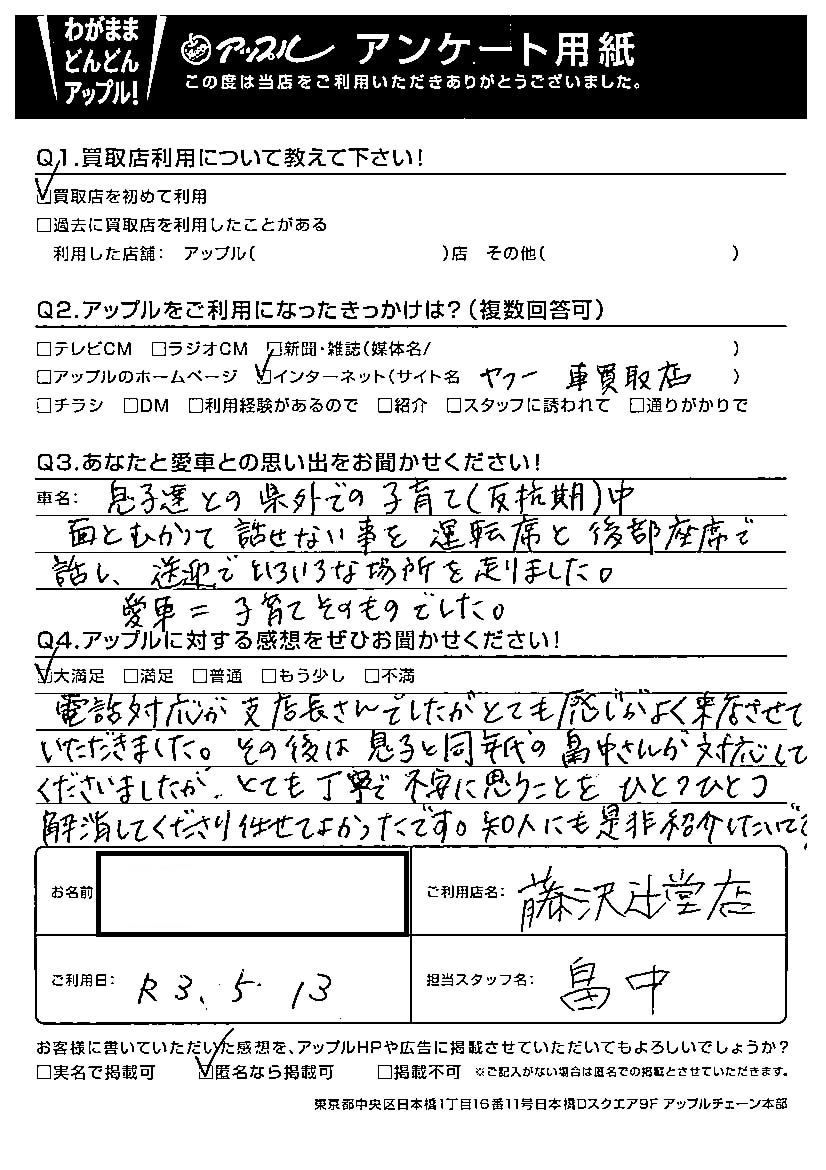 わがまま
どんどん
アップル!
アップル アンケート用紙
この度は当店をご利用いただきありがとうございました。
Q1.買取店利用について教えて下さい!
☑買取店を初めて利用
□過去に買取店を利用したことがある
利用した店舗: アップル( )店 その他( )
Q2.アップルをご利用になったきっかけは?(複数回答可)
□テレビCM □ラジオCM □新聞・雑誌(媒体名/ )
□アップルのホームページ ☑インターネット(サイト名 ヤフー 車買取店 )
□チラシ □DM □利用経験があるので □紹介 □スタッフに誘われて □通りがかりで
Q3.あなたと愛車との思い出をお聞かせください!
車名: 息子達との県外での子育て(反抗期)中
面とむかって話せない事を運転席と後部座席で
話し、送迎でいろいろな場所を走りました。
愛車=子育てそのものでした。
Q4.アップルに対する感想をぜひお聞かせください!
☑大満足 □満足 □普通 □もう少し □不満
電話対応が支店長さんでしたがとても感じがよく来店させて
いただきました。その後は息子と同年代の畠中さんが対応して
くださいましたが、とても丁寧で不安に思うことをひとつひとつ
解消してくださり任せてよかったです。知人にも是非紹介したいです
お名前
ご利用店名: 藤沢辻堂店
ご利用日: R3.5.13
担当スタッフ名: 畠中
お客様に書いていただいた感想を、アップルHPや広告に掲載させていただいてもよろしいでしょうか?
□実名で掲載可 ☑匿名なら掲載可 □掲載不可 ※ご記入がない場合は匿名での掲載とさせていただきます。
東京都中央区日本橋1丁目16番11号日本橋Dスクエア9F アップルチェーン本部